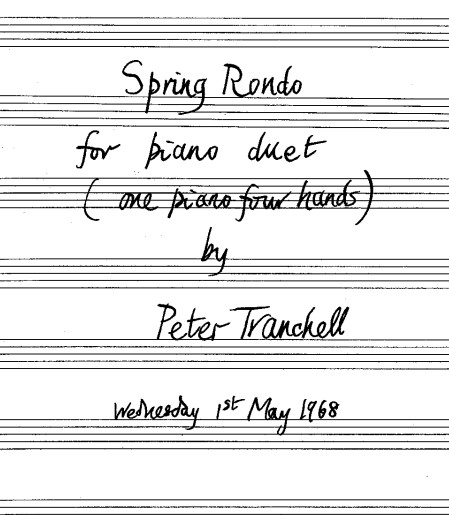 Spring Rondo
for piano duet
( one piano four hands )
by
Peter Tranchell
Wednesday 1st May 1968